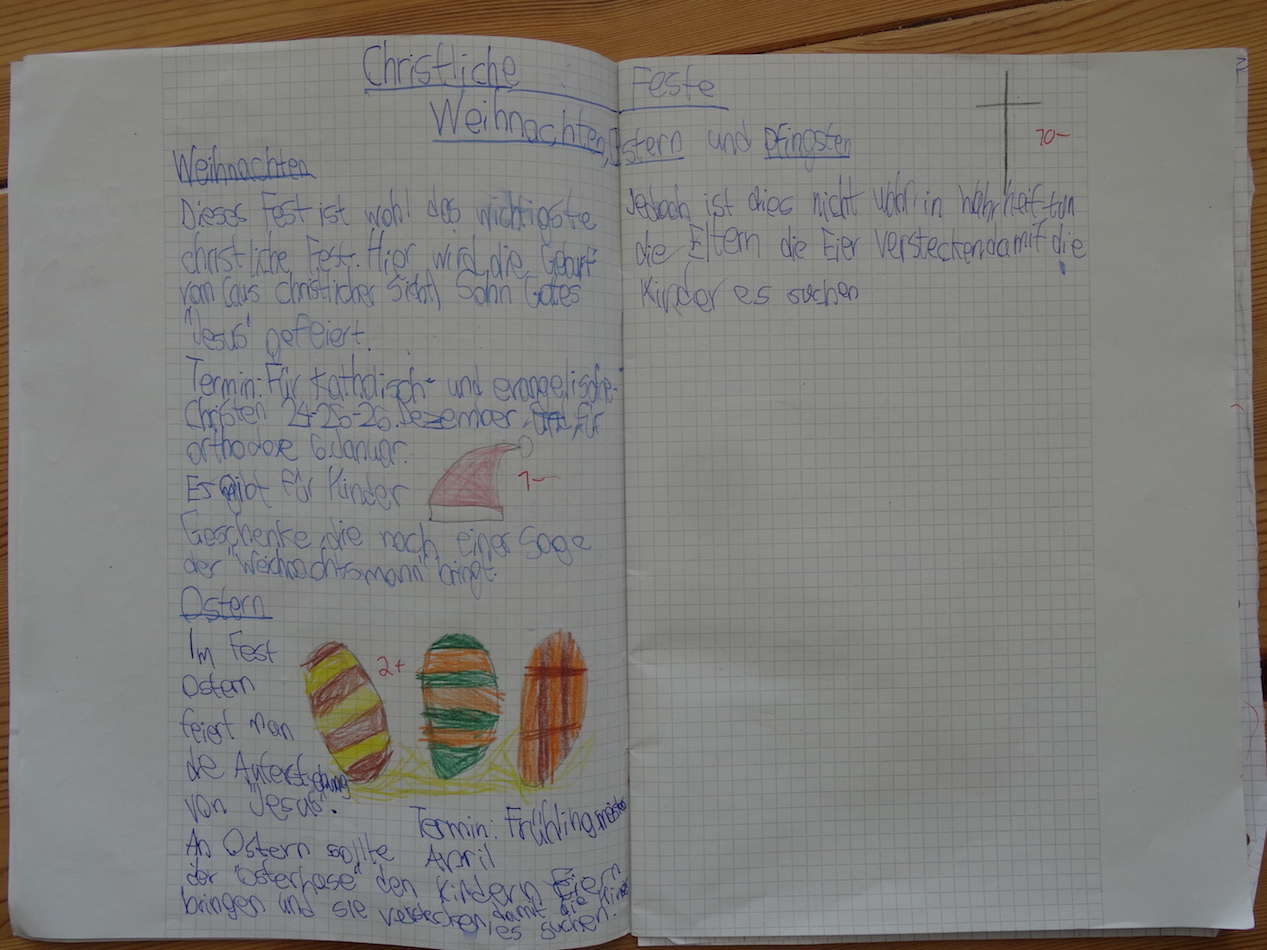 Christliche Feste
Weihnachten, Ostern und Pfingsten
Weihnachten
Dieses Fest ist wohl das wichtigste
christliche Fest. Hier wird die Geburt
vom (aus christlicher Sicht) Sohn Gotes
"Jesus" gefeiert.
Termin: Für katholisch- und evangelische-
Christen 24-25-26. Dezember für
orthodoxe 6. Januar.
Es gibt für Kinder
1-
Geschenke, die nach einer Sage
der "Weichnachtsmann" bringt.
Ostern
Im Fest
Ostern
feiert man
die Auferstehung
von "Jesus".
2+
Termin: Frühling meistens
April
An Ostern sollte
der "Osterhase" den Kindern Eiern
bringen und sie verstecken, damit die Kinder
es suchen.
10-
Jedoch ist dies nicht wahr, in Wahrheit tun
die Eltern die Eier verstecken damit die
Kinder es suchen